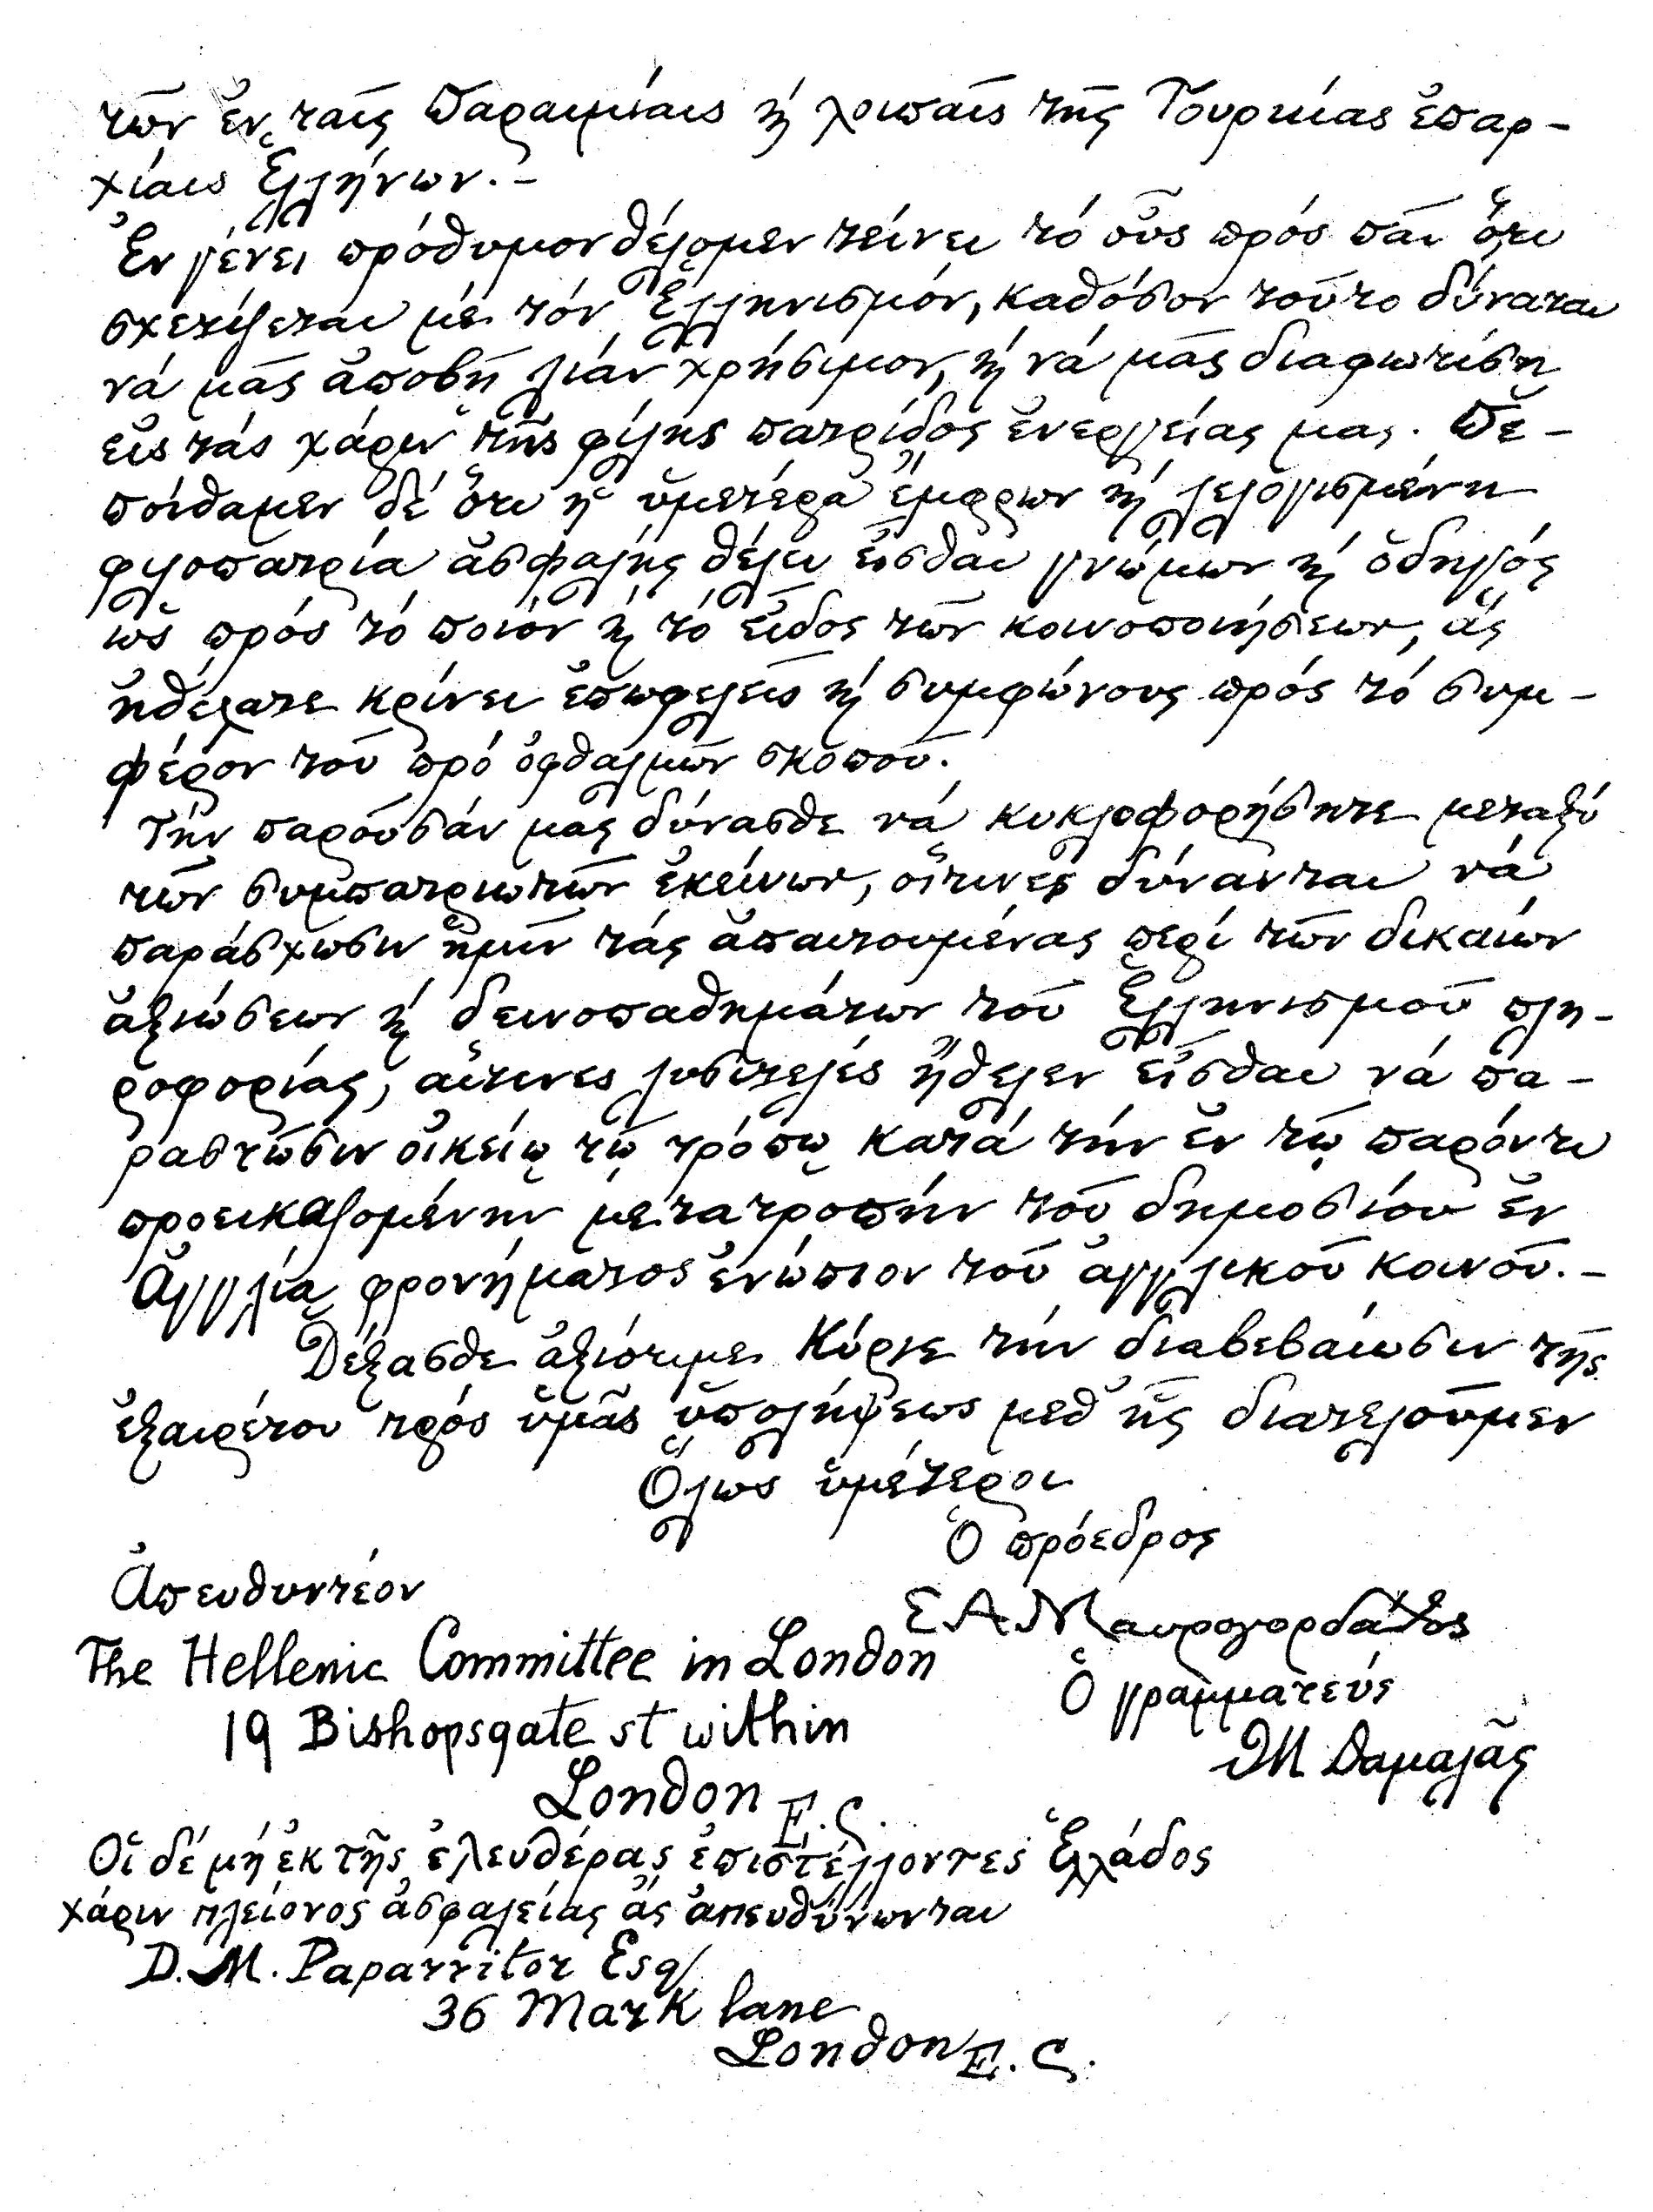 τῶν ἐν ταῖς Παραμίαις ϗ λοιπαῖς τῆς Τουρκίας ἐπαρ-
χίαις Ἑλλήνων.-
Ἐν γένει πρόθυμον θέλομεν τείνει τό οὖς πρός πᾶν ὅτι
σχετίζεται μέ τόν Ἑλληνισμόν, καθόσον τοῦτο δύναται
νά μᾶς ἀποβῇ λίαν χρήσιμον, ϗ νά μᾶς διαφωτίσῃ
εἰς τάς χάριν τῆς φίλης πατρίδος ἐνεργείας μας. Πε-
ποίθαμεν δέ ὅτι ἡ ὑμετέρα ἔμφρων ϗ λελογισμένη
φιλοπατρία ἀσφαλής θέλει εἶσθαι γνώμων ϗ ὁδηγός
ὡς πρός τό ποιόν ϗ τό εἶδος τῶν κοινοποιήσεων, ἅς
ἠθέλατε κρίνει ἐπωφελεῖς ϗ συμφώνους πρός τό συμ-
φέρον τοῦ πρό ὀφθαλμῶν σκοποῦ.
Τήν παροῦσάν μας δύνασθε νά κυκλοφορήσητε μεταξύ
τῶν συμπατριωτῶν ἐκείνων, οἵτινες δύνανται νά
παράσχωσιν ἡμῖν τάς ἀπαιτουμένας περί τῶν δικαίων
ἀξιώσεων ϗ δεινοπαθημάτων τοῦ Ἑλληνισμοῦ πλη-
ροφορίας, αἵτινες λυσιτελές ἤθελεν εἶσθαι νά πα-
ραστῶσιν οἰκείῳ τῷ τρόπῳ κατά τήν ἐν τῷ παρόντι
προεικαζομένην μετατροπήν τοῦ δημοσίου ἐν
Ἀγγλίᾳ φρονήματος ἐνώπιον τοῦ ἀγγλικοῦ κοινοῦ.-
Δέξασθε ἀξιότιμε Κύριε τήν διαβεβαίωσιν τῆς
ἐξαιρέτου πρός ὑμᾶς ὑπολήψεως μεθ' ἧς διατελοῦμεν
Ὅλως ὑμέτεροι
Ὁ πρόεδρος
Ἀπευθυντέον
Ε Α Μαυρογορδάτος
The Hellenic Committee in London
Ὁ γραμματεύς
19 Bishopsgate st within
Μ Δαμαλᾶς
London E.C.
Οἱ δέ μή ἐκ τῆς ἐλευθέρας ἐπιστέλλοντες Ἑλλάδος
χάριν πλείονος ἀσφαλείας ἄς ἀπευθύνωνται
D. M. Paparritor Esq/
36 Mark lane
London E.C.